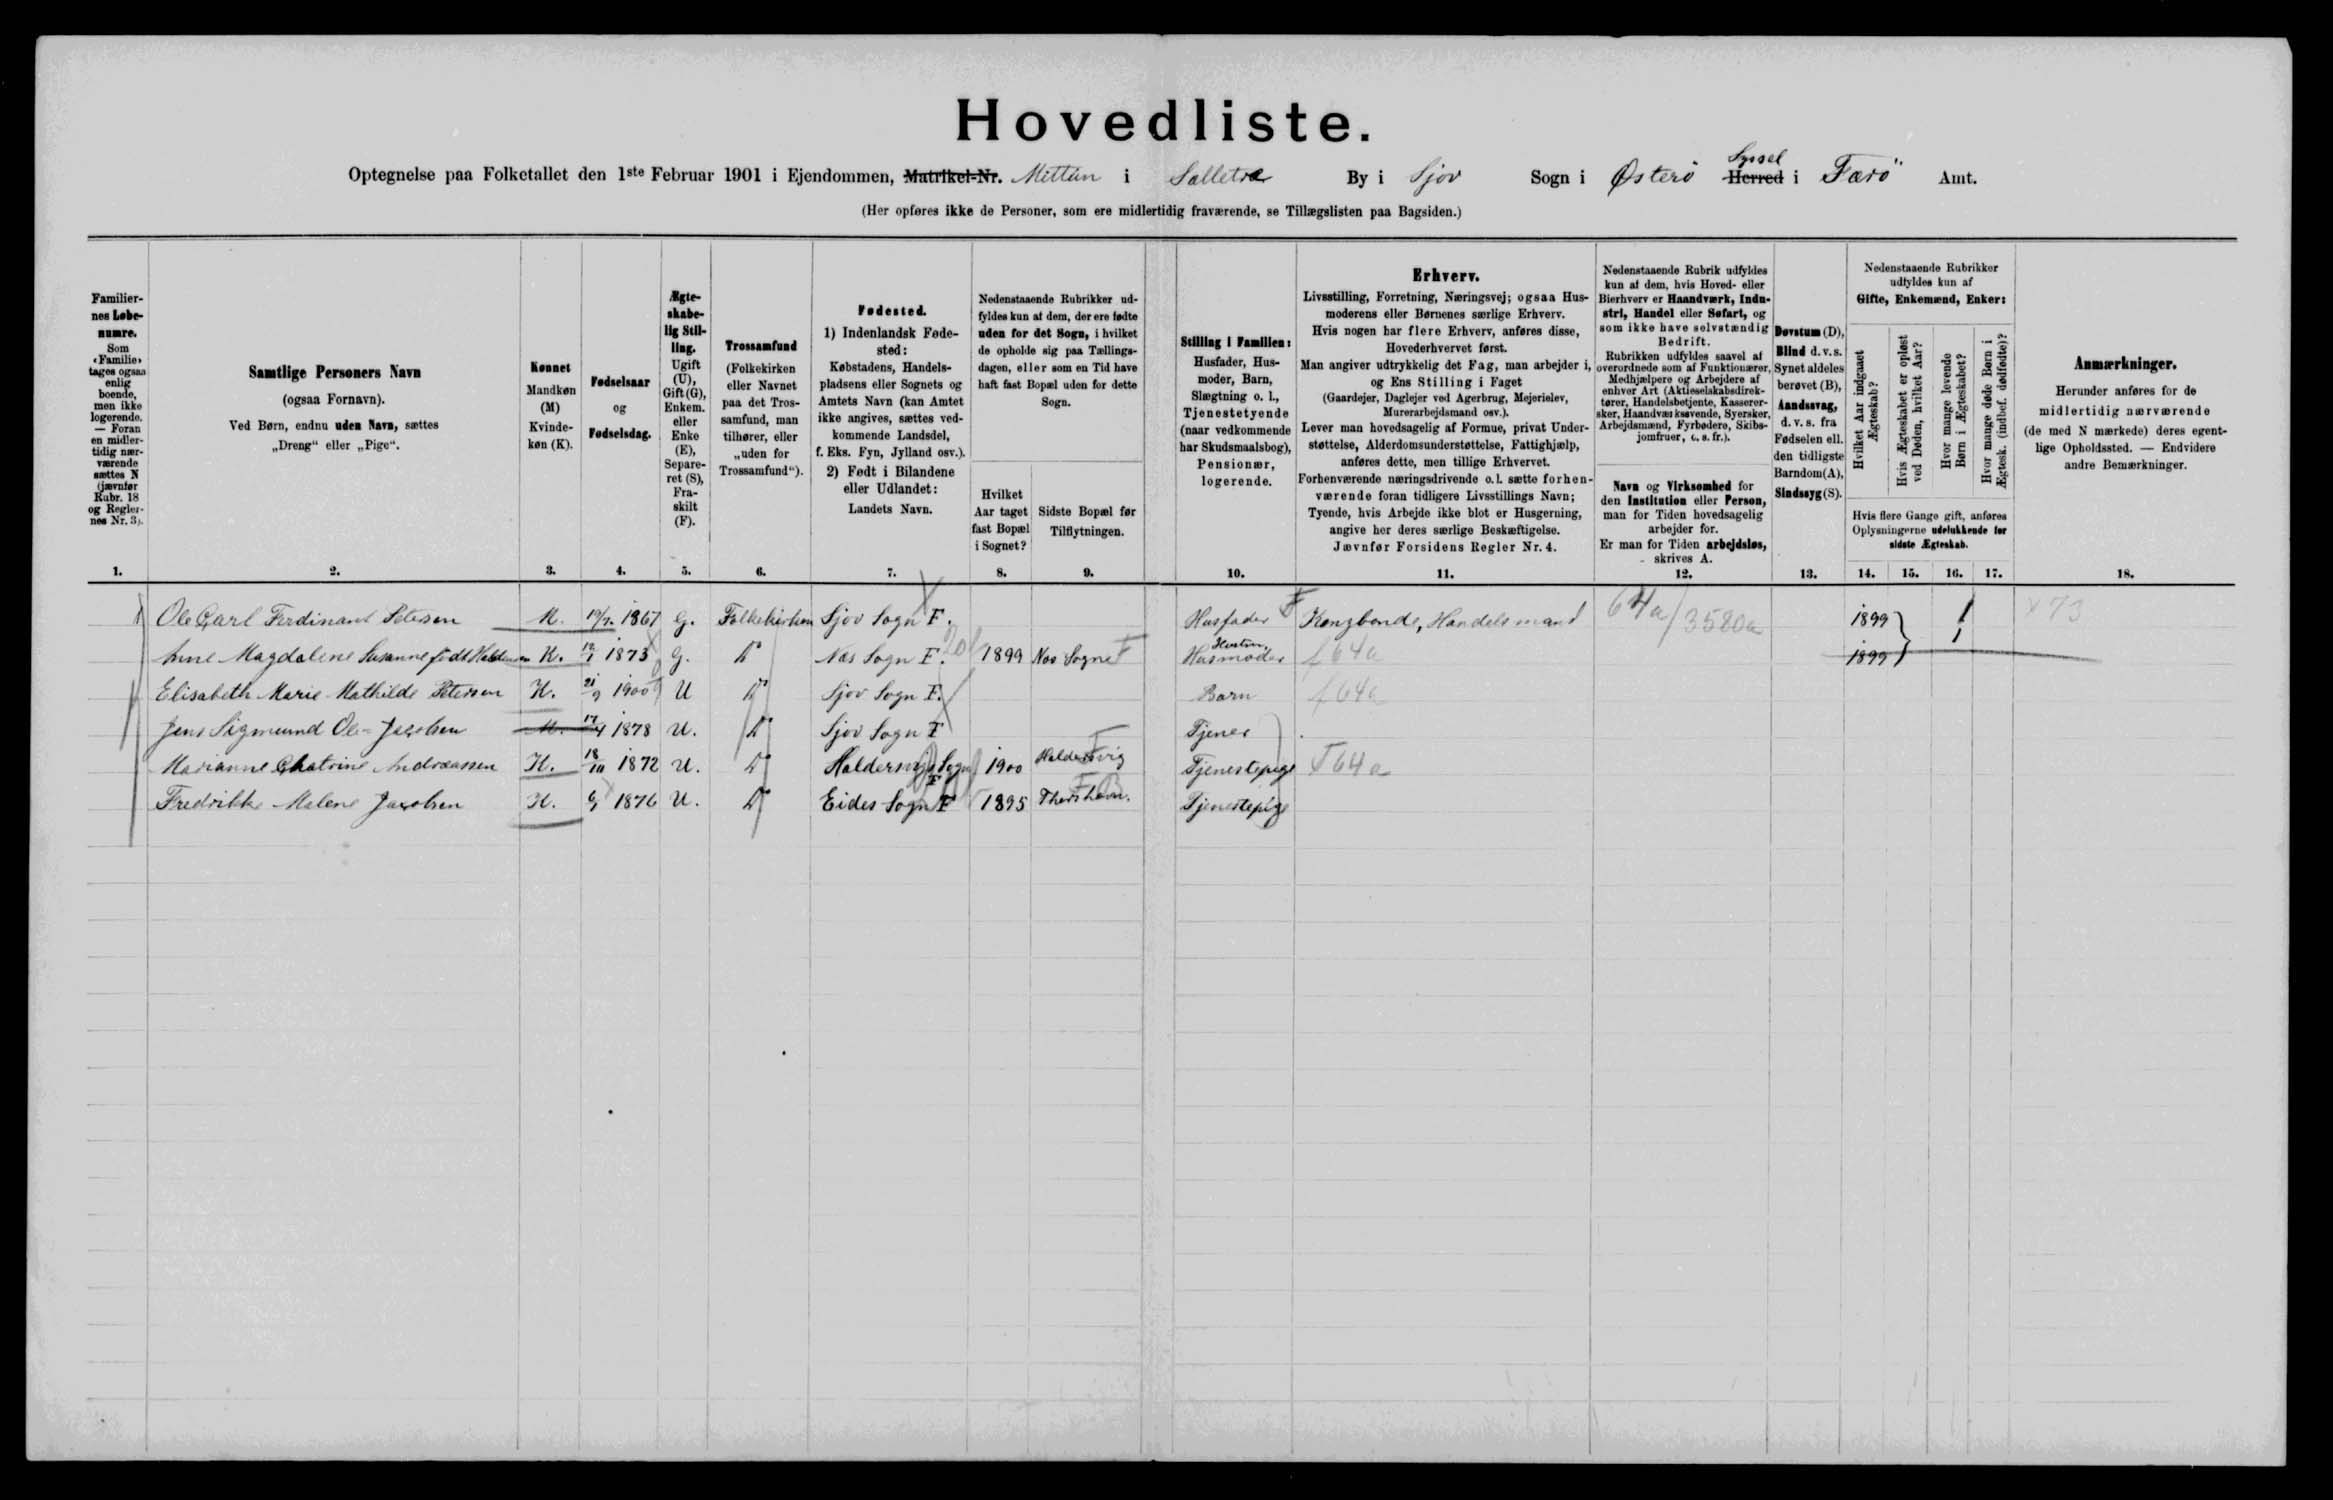 Hovedliste.
Optegnelse paa Folketallet den 1ste Februar 1901 i Ejendommen, Matrikel-Nr. Mittun i Salletræ By i Sjov Sogn i Østerö Herred Syssel i Færö Amt.
(Her opføres ikke de Personer, som ere midlertidig fraværende, se Tillægslisten paa Bagsiden.)
Familiernes Løbenumre.
Som «Familie» tages ogsaa enlig boende, men ikke logerende. — Foran en midlertidig nærværende sættes N (jævnfør Rubr. 18 og Reglernes Nr. 3).
Samtlige Personers Navn
(ogsaa Fornavn).
Ved Børn, endnu uden Navn, sættes
„Dreng“ eller „Pige“.
Kønnet
Mandkøn (M)
Kvindekøn (K).
Fødselsaar
og
Fødselsdag.
Ægteskabelig Stilling.
Ugift (U), Gift (G), Enkem. eller Enke (E), Separeret (S), Fraskilt (F).
Trossamfund
(Folkekirken eller Navnet paa det Trossamfund, man tilhører, eller „uden for Trossamfund“).
Fødested.
1) Indenlandsk Fødested:
Købstadens, Handelspladsens eller Sognets og Amtets Navn (kan Amtet ikke angives, sættes vedkommende Landsdel, f. Eks. Fyn, Jylland osv.).
2) Født i Bilandene eller Udlandet:
Landets Navn.
Nedenstaaende Rubrikker udfyldes kun af dem, der ere fødte uden for det Sogn, i hvilket de opholde sig paa Tællingsdagen, eller som en Tid have haft fast Bopæl uden for dette Sogn.
Hvilket Aar taget fast Bopæl i Sognet?
Sidste Bopæl før Tilflytningen.
Stilling i Familien:
Husfader, Husmoder, Barn, Slægtning o. l., Tjenestetyende (naar vedkommende har Skudsmaalsbog), Pensionær, logerende.
Erhverv.
Livsstilling, Forretning, Næringsvej; ogsaa Husmoderens eller Børnenes særlige Erhverv.
Hvis nogen har flere Erhverv, anføres disse, Hovederhvervet først.
Man angiver udtrykkelig det Fag, man arbejder i, og Ens Stilling i Faget
(Gaardejer, Daglejer ved Agerbrug, Mejerielev, Murerarbejdsmand osv.).
Lever man hovedsagelig af Formue, privat Understøttelse, Alderdomsunderstøttelse, Fattighjælp, anføres dette, men tillige Erhvervet.
Forhenværende næringsdrivende o. l. sætte forhenværende foran tidligere Livsstillings Navn;
Tyende, hvis Arbejde ikke blot er Husgerning, angive her deres særlige Beskæftigelse.
Jævnfør Forsidens Regler Nr. 4.
Nedenstaaende Rubrik udfyldes kun af dem, hvis Hoved- eller Bierhverv er Haandværk, Industri, Handel eller Søfart, og som ikke have selvstændig Bedrift.
Rubrikken udfyldes saavel af overordnede som af Funktionærer, Medhjælpere og Arbejdere af enhver Art (Aktieselskabsdirektører, Handelsbetjente, Kasserersker, Haandværkssvende, Syersker, Arbejdsmænd, Fyrbødere, Skibsjomfruer, o. s. fr.).
Navn og Virksomhed for den Institution eller Person, man for Tiden hovedsagelig arbejder for.
Er man for Tiden arbejdsløs, skrives A.
Døvstum (D), Blind d. v. s. Synet aldeles berøvet (B), Aandssvag, d. v. s. fra Fødselen ell. den tidligste Barndom (A), Sindssyg (S).
Nedenstaaende Rubrikker udfyldes kun af
Gifte, Enkemænd, Enker:
Hvilket Aar indgaaet Ægteskab?
Hvis Ægteskabet er opløst ved Døden, hvilket Aar?
Hvor mange levende Børn i Ægteskabet?
Hvor mange døde Børn i Ægtesk. (indbef. dødfødte)?
Hvis flere Gange gift, anføres Oplysningerne udelukkende for sidste Ægteskab.
Anmærkninger.
Herunder anføres for de midlertidig nærværende (de med N mærkede) deres egentlige Opholdssted. — Endvidere andre Bemærkninger.
1. 2. 3. 4. 5. 6. 7. 8. 9. 10. 11. 12. 13. 14. 15. 16. 17. 18.
1 Ole Carl Ferdinant Petersen M. 19/7. 1867 G. Folkekirken Sjov Sogn F. Husfader F Kongbonde, Handelsmand 64a/3520a 1899 1 x 73
Anne Magdalene Susanne født Haldensen K. 12/1 1873 G. Do Nos Sogn F. 1899 Nos Sogne F Husmoder Hustru f 64a 1899 1
Elisabeth Marie Mathilde Petersen K. 21/9 1900 U Do Sjov Sogn F. Barn f 64a
Jens Sigmund Ole Jacobsen M. 17/4 1878 U. Do Sjov Sogn F Tjener
Marianne Chatrine Andreassen K. 18/10 1872 U. Do Haldersvig Sogn F 1900 Haldersvig Tjenestepige T 64a
Fredrikke Malene Jacobsen K. 6/9 1876 U. Do Eides Sogn F 1895 Thorshavn. Tjenestepige